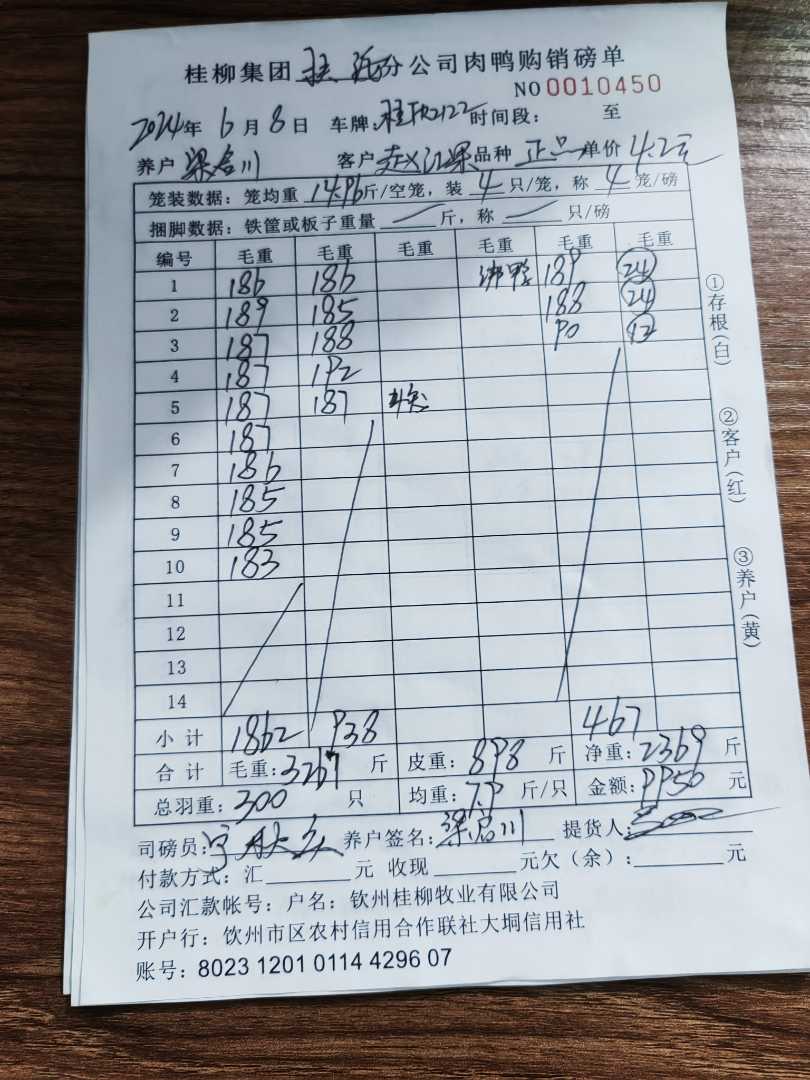 桂柳集团 分公司肉鸭购销磅单
NO 0010450
2024年 6月 8日 车牌: 时间段: 至
养户 梁启川 客户 赵江果 品种 正品 单价 4.2元
笼装数据: 笼均重 14.96 斤/空笼, 装 4 只/笼, 称 4 笼/磅
捆脚数据: 铁筐或板子重量 斤, 称 只/磅
编号 毛重 毛重 毛重 毛重 毛重 毛重
1 186 186 绑鸭 189 24
2 189 185 188 24
3 187 188 90 12
4 187 192
5 187 187
6 187
7 186
8 185
9 185
10 183
11
12
13
14
小计 1862 938 467
合计 毛重: 3267 斤 皮重: 898 斤 净重: 2369 斤
总羽重: 300 只 均重: 7.9 斤/只 金额: 9950 元
司磅员: 养户签名: 梁启川 提货人:
付款方式: 汇 元 收现 元 欠(余): 元
公司汇款帐号: 户名: 钦州桂柳牧业有限公司
开户行: 钦州市区农村信用合作联社大垌信用社
账号: 8023 1201 0114 4296 07
①存根(白)
②客户(红)
③养户(黄)